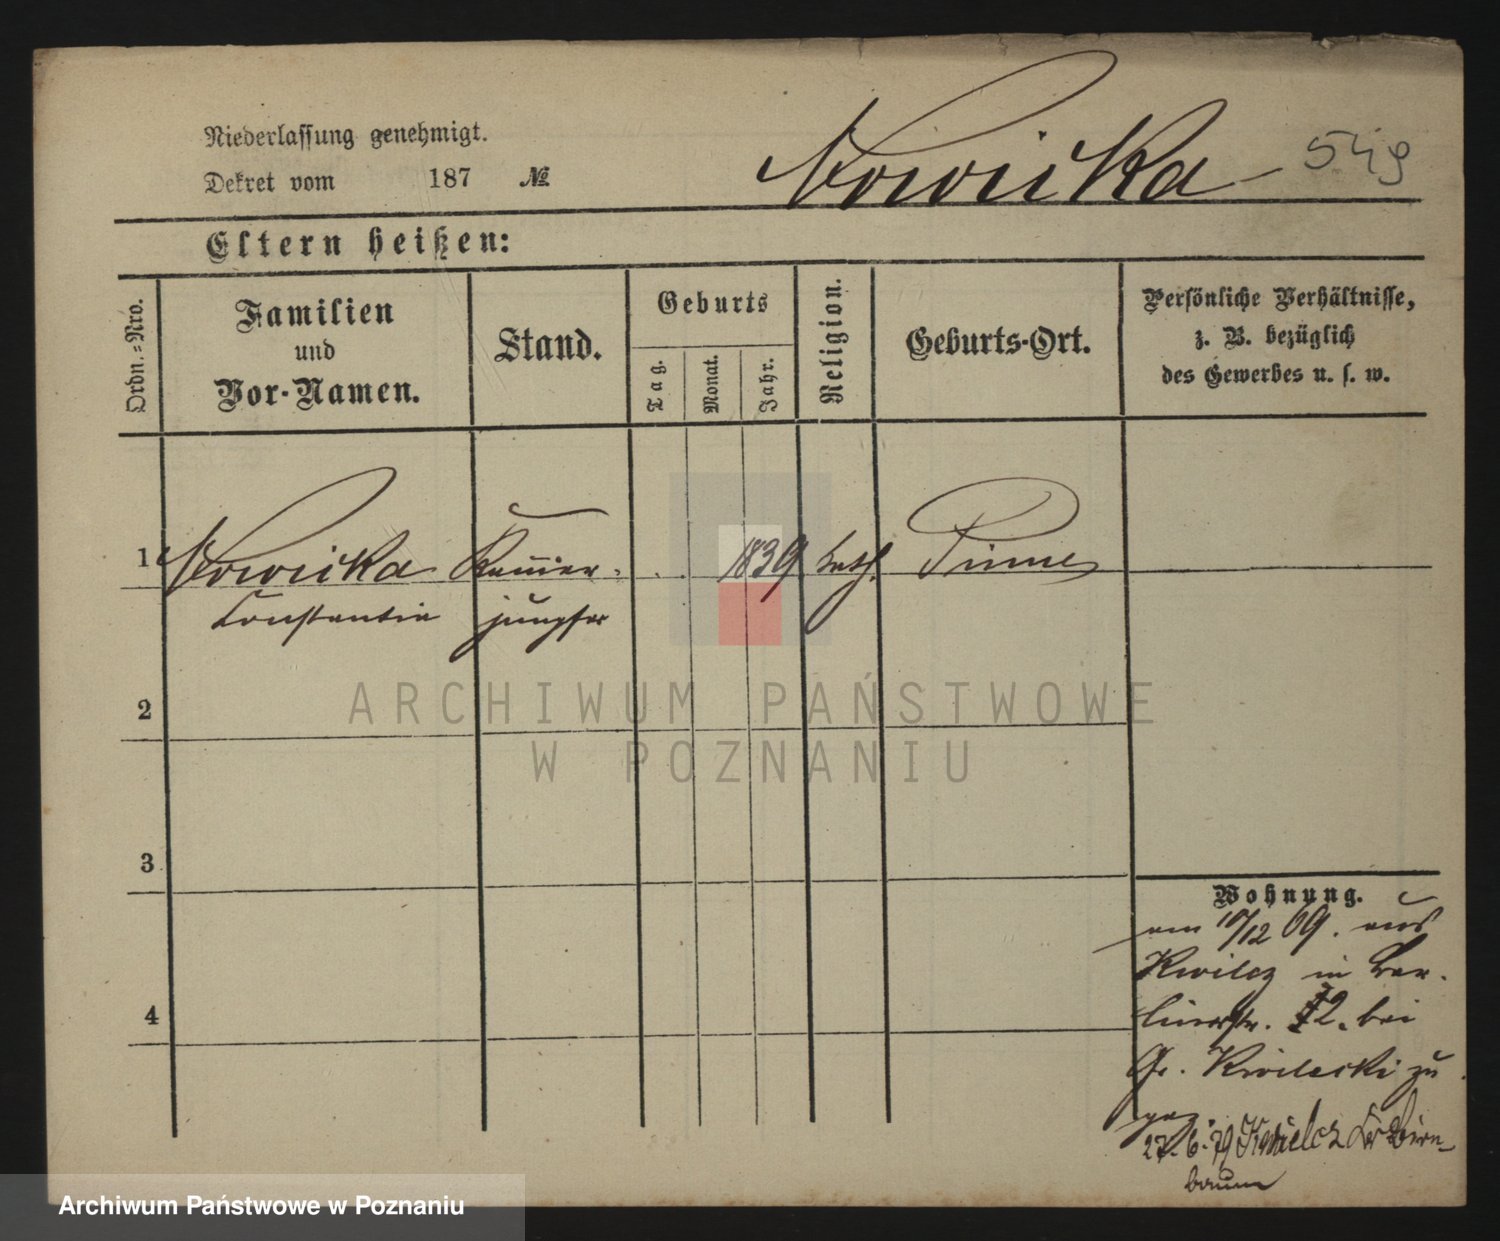 Niederlassung genehmigt.
Dekret vom 187 №
Nowicka
549
Eltern heißen:
Ordn.-Nro.
Familien
und
Vor-Namen.
Stand.
Geburts
Tag.
Monat.
Jahr.
Religion.
Geburts-Ort.
Persönliche Verhältnisse,
z. B. bezüglich
des Gewerbes u. s. w.
1 Nowicka Kammer- 1839 kath. Pinne
Constantia jungfer
2
3
4
Wohnung.
am 10/12 69. aus
Kwilcz in Ber-
linerstr. 12. bei
Gr. Kwilecki zu
gez.
27. 6. 79 Kwielcz Kr Birn-
baum
ARCHIWUM PAŃSTWOWE
W POZNANIU
Archiwum Państwowe w Poznaniu